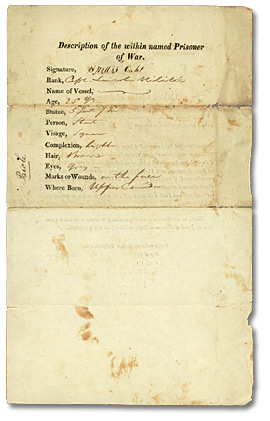 Description of the within named Prisoner
of War.
Signature, W H Merritt Capt
Rank, Capt Lincoln Militia
Name of Vessel,
Age, 25 Yrs
Statue,
Person, Stout
Visage, Square
Complexion,
Hair, Brown
Eyes, Grey
Marks or Wounds, on the face
Where Born, Upper Canada